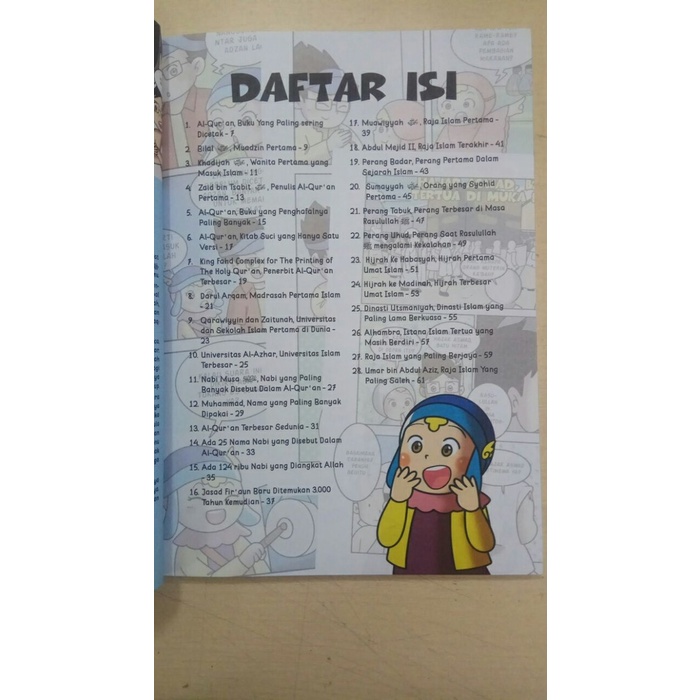 DAFTAR ISI
1. Al-Qur'an, Buku Yang Paling sering
Dicetak - 7
2. Bilal, Muadzin Pertama - 9
3. Khadijah, Wanita Pertama yang
Masuk Islam - 11
4. Zaid bin Tsabit, Penulis Al-Qur'an
Pertama - 13
5. Al-Qur'an, Buku yang Penghafalnya
Paling Banyak - 15
6. Al-Qur'an, Kitab Suci yang Hanya Satu
Versi - 17
7. King Fahd Complex for The Printing of
The Holy Qur'an, Penerbit Al-Qur'an
Terbesar - 19
8. Darul Arqam, Madrasah Pertama Islam
- 21
9. Qarawiyyin dan Zaitunah, Universitas
dan Sekolah Islam Pertama di Dunia -
23
10. Universitas Al-Azhar, Universitas Islam
Terbesar - 25
11. Nabi Musa, Nabi yang Paling
Banyak Disebut Dalam Al-Qur'an - 27
12. Muhammad, Nama yang Paling Banyak
Dipakai - 29
13. Al-Qur'an Terbesar Sedunia - 31
14. Ada 25 Nama Nabi yang Disebut Dalam
Al-Qur'an - 33
15. Ada 124 ribu Nabi yang Diangkat Allah
- 35
16. Jasad Fir'aun Baru Ditemukan 3.000
Tahun Kemudian - 37
17. Muawiyyah, Raja Islam Pertama -
39
18. Abdul Mejid II, Raja Islam Terakhir - 41
19. Perang Badar, Perang Pertama Dalam
Sejarah Islam - 43
20. Sumayyah, Orang yang Syahid
Pertama - 45
21. Perang Tabuk, Perang Terbesar di Masa
Rasulullah ﷺ - 47
22. Perang Uhud, Perang Saat Rasulullah
ﷺ mengalami Kekalahan - 49
23. Hijrah Ke Habasyah, Hijrah Pertama
Umat Islam - 51
24. Hijrah ke Madinah, Hijrah Terbesar
Umat Islam - 53
25. Dinasti Utsmaniyah, Dinasti Islam yang
Paling Lama Berkuasa - 55
26. Alhambra, Istana Islam Tertua yang
Masih Berdiri - 57
27. Raja Islam yang Paling Berjaya - 59
28. Umar bin Abdul Aziz, Raja Islam Yang
Paling Saleh - 61